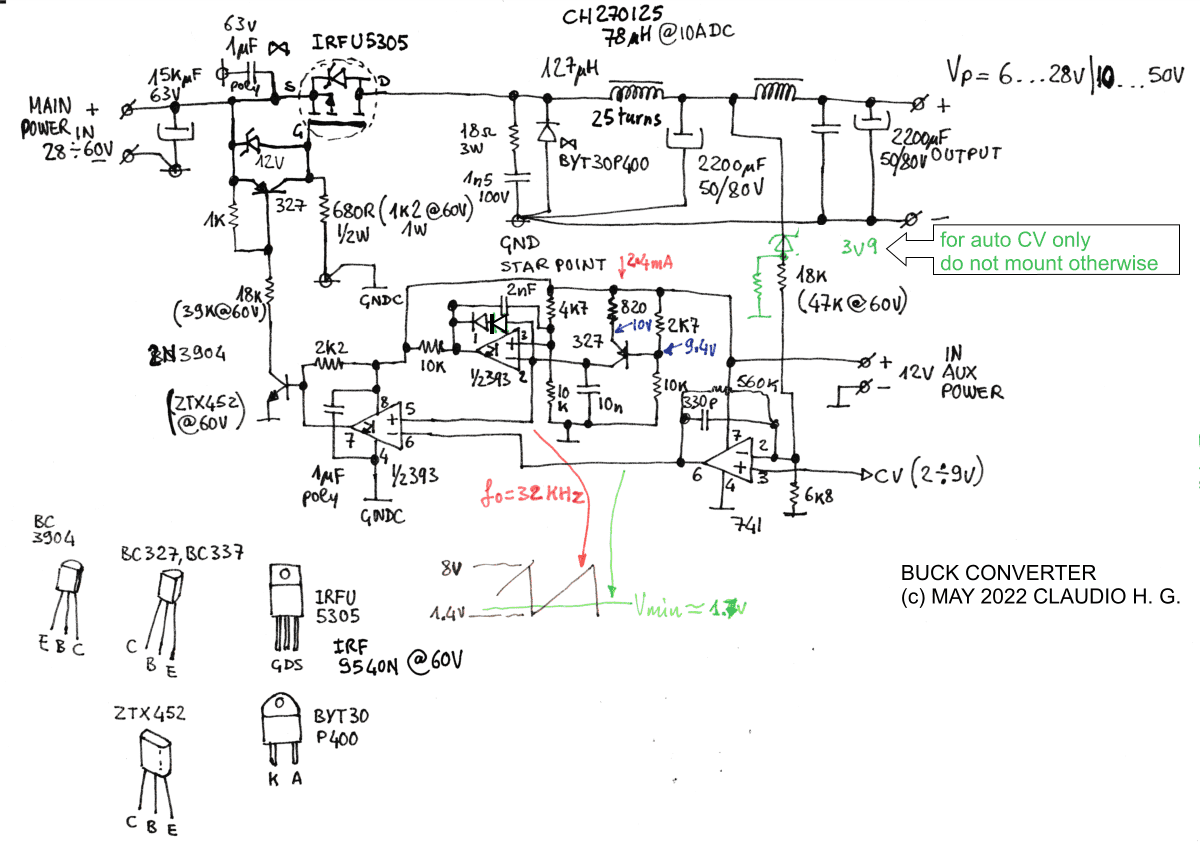 CH270125
78µH @10ADC
63V
1µF
poly
IRFU5305
S
D
G
15KµF
63V
MAIN +
POWER IN
28÷60V
−
127µH
25 turns
Vp = 6...28V|10...50V
+
18Ω
3W
BYT30P400
1n5
100V
2200µF
50/80V
2200µF
50/80V
OUTPUT
−
12V
327
1K
680R (1K2 @60V)
1/2W 1W
GND
STAR POINT
GNDC
2.4mA
3V9
for auto CV only
do not mount otherwise
18K
(47K@60V)
18K
(39K@60V)
2nF
4K7
820
10V
2K7
327
9.4V
2N3904
2K2
10K
1/2393
3
2
+
−
10
K
10n
10K
560K
330P
+
−
12V
IN
AUX
POWER
(ZTX452)
@60V
8
5
6
7
4
+
−
1/2393
1µF
poly
GNDC
7
2
3
6
4
−
+
741
CV (2÷9V)
6K8
fo=32KHz
8V
1.4V
Vmin ≃ 1.7V
BC
3904
E B C
BC327, BC337
C
B
E
IRFU
5305
GDS
IRF
9540N @60V
BUCK CONVERTER
(c) MAY 2022 CLAUDIO H. G.
ZTX452
C B E
BYT30
P400
K A